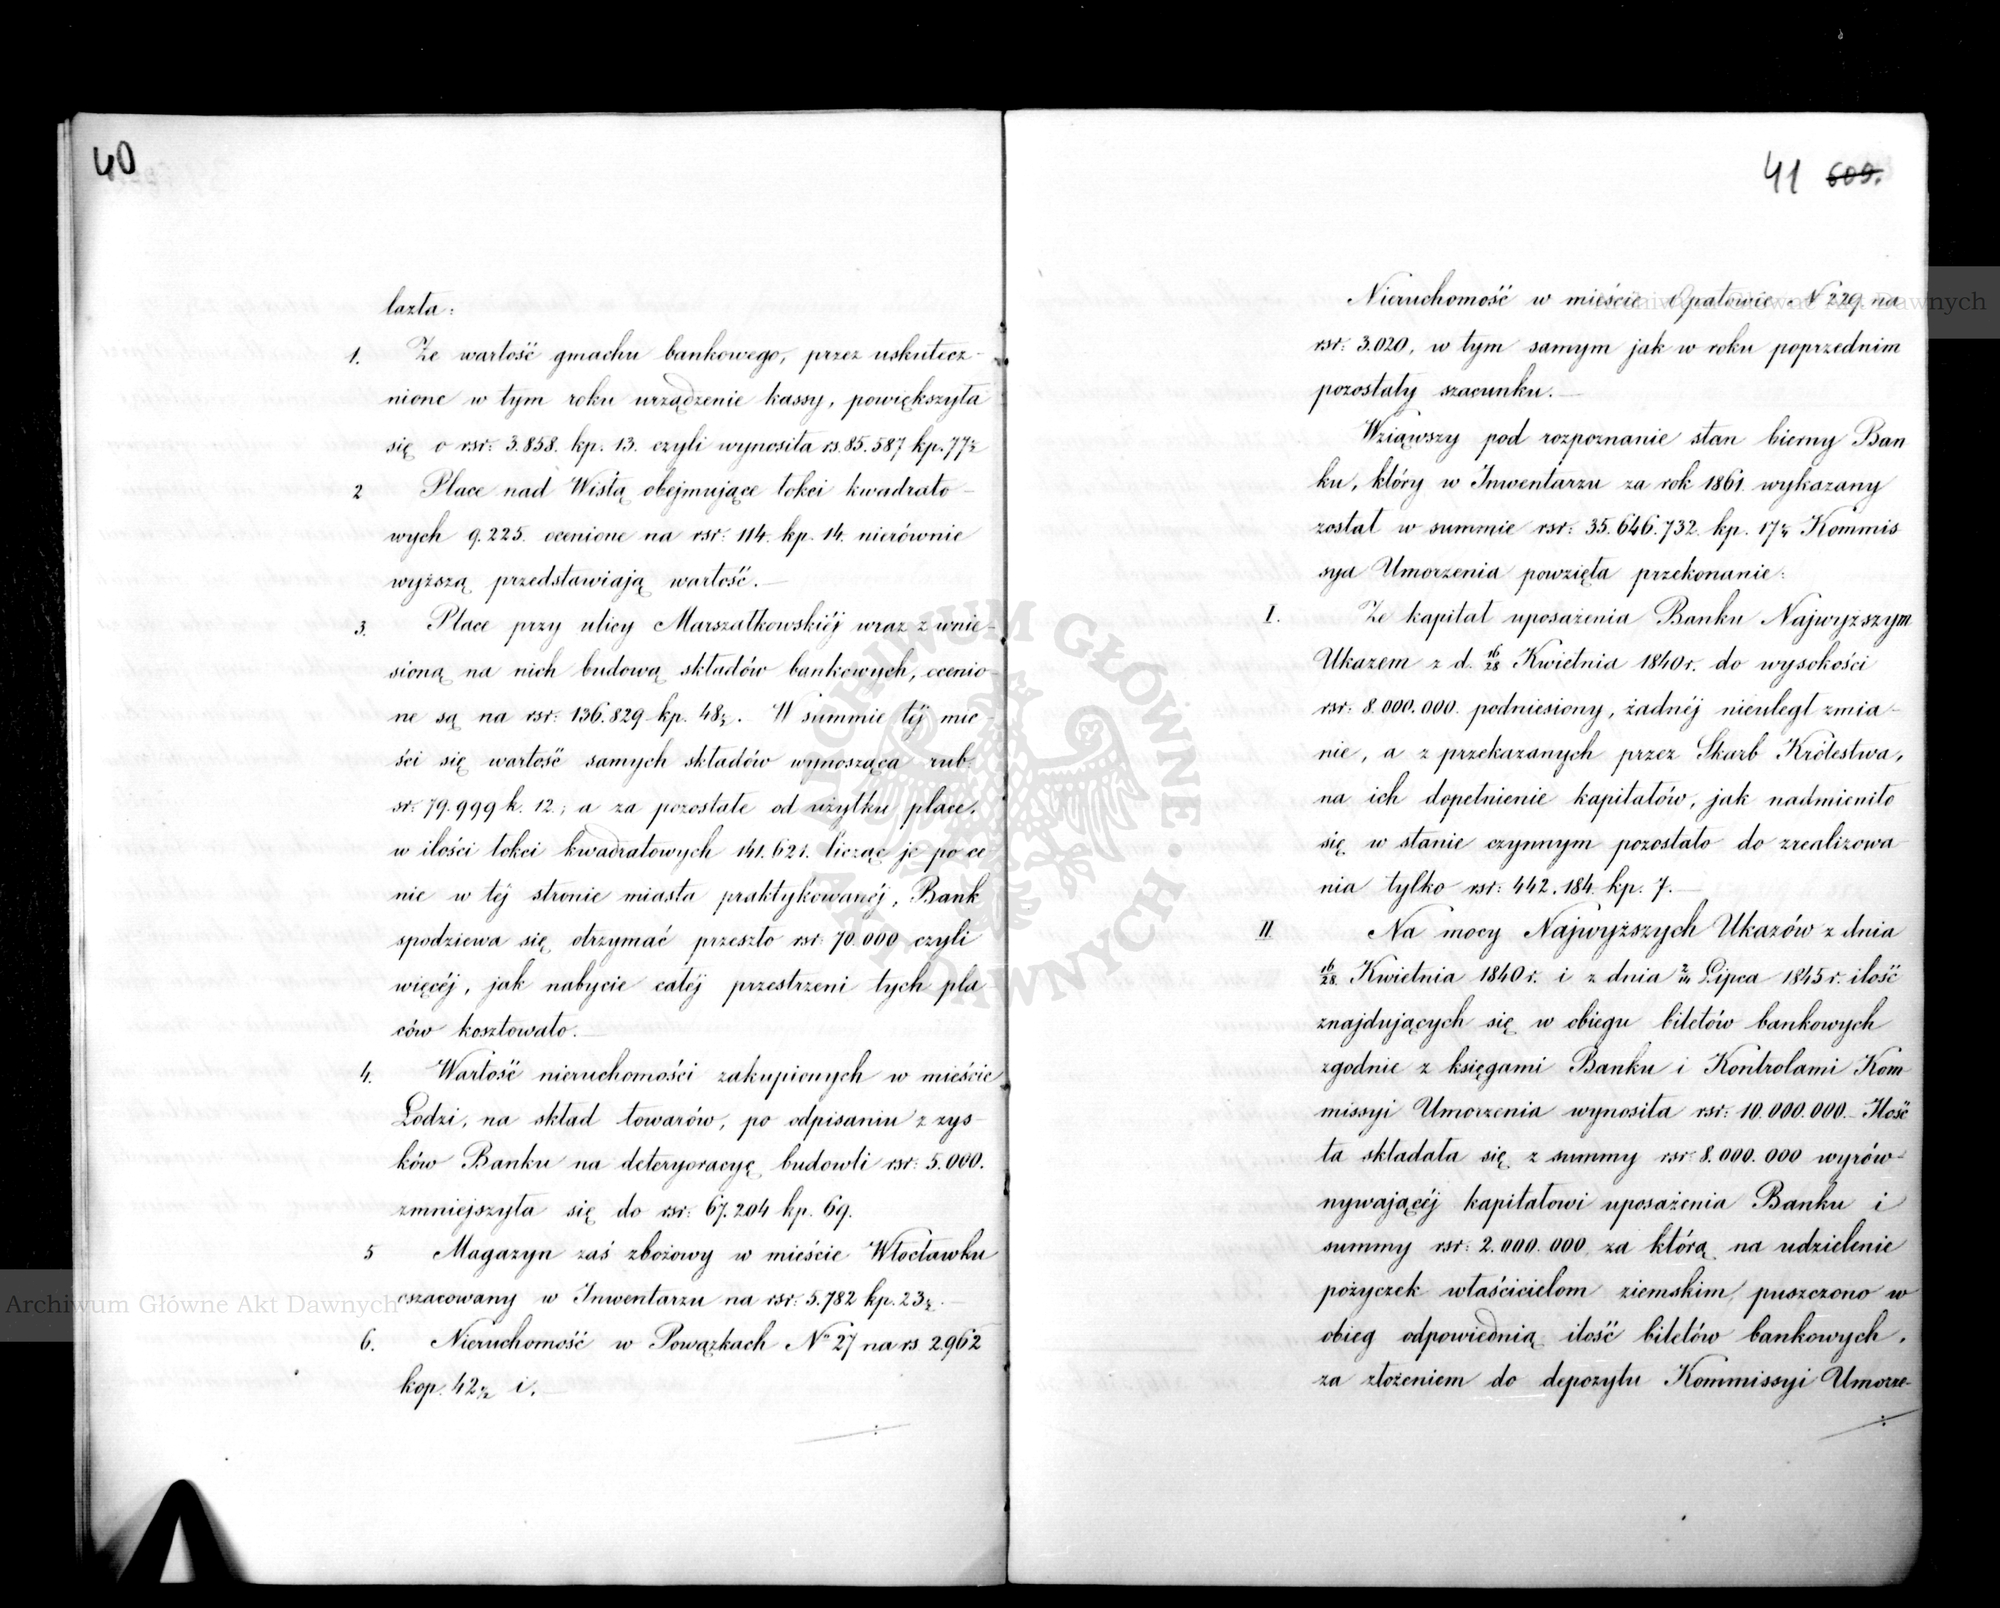 40
lazła:
1. Że wartość gmachu bankowego, przez uskutecz-
nione w tym roku urządzenie kassy, powiększyła
się o rsr: 3.858. kp. 13. czyli wynosiła rs. 85.587 kp. 77½
2 Place nad Wisłą obejmujące łokci kwadrato-
wych 9.225. ocenione na rsr: 114. kp. 14. nierównie
wyższą przedstawiają wartość.—
3. Place przy ulicy Marszałkowskiéj wraz z wnie-
sioną na nich budową składów bankowych, ocenio-
ne są na rsr: 136.829 kp. 48½. W summie téj mie-
ści się wartość samych składów wynosząca rub:
sr: 79.999 k. 12.; a za pozostałe od użytku place,
w ilości łokci kwadratowych 141.621. licząc je po ce
nie w téj stronie miasta praktykowanéj, Bank
spodziewa się otrzymać przeszło rsr: 70.000 czyli
więcéj, jak nabycie całéj przestrzeni tych pla
ców kosztowało.—
4. Wartość nieruchomości zakupionych w mieście
Łodzi, na skład towarów, po odpisaniu z zys-
ków Banku na deteryoracyę budowli rsr: 5.000.
zmniejszyła się do rsr: 67.204 kp. 69.
5 Magazyn zaś zbożowy w mieście Włocławku
oszacowany w Inwentarzu na rsr: 5.782 kp. 23½.—
6. Nieruchomość w Powązkach No 27 na rs. 2.962
kop. 42½ i.—
41 609.
Nieruchomość w mieście Opatowie N 229 na
rsr: 3.020, w tym samym jak w roku poprzednim
pozostały szacunku.—
Wziąwszy pod rozpoznanie stan bierny Ban
ku, który w Inwentarzu za rok 1861. wykazany
został w summie rsr: 35.646.732. kp. 17½ Kommis
sya Umorzenia powzięła przekonanie:
I. Że kapitał uposażenia Banku Najwyższym
Ukazem z d. 16/28 Kwietnia 1840 r. do wysokości
rsr: 8.000.000. podniesiony, żadnéj nieuległ zmia-
nie, a z przekazanych przez Skarb Królestwa,
na ich dopełnienie kapitałów, jak nadmieniło
się w stanie czynnym pozostało do zrealizowa
nia tylko rsr: 442.184. kp. 7.—
II Na mocy Najwyższych Ukazów z dnia
16/28. Kwietnia 1840 r. i z dnia 2/14 Lipca 1845 r. ilość
znajdujących się w obiegu biletów bankowych
zgodnie z księgami Banku i Kontrolami Kom
missyi Umorzenia wynosiła rsr: 10.000.000.— Ilość
ta składała się z summy rsr: 8.000.000 wyrów-
nywającéj kapitałowi uposażenia Banku i
summy rsr: 2.000.000, za którą na udzielenie
pożyczek właścicielom ziemskim puszczono w
obieg odpowiednią ilość biletów bankowych,
za złożeniem do depozytu Kommissyi Umorze-
Archiwum Główne Akt Dawnych
Archiwum Główne Akt Dawnych
ARCHIWUM GŁÓWNE · AKT DAWNYCH ·